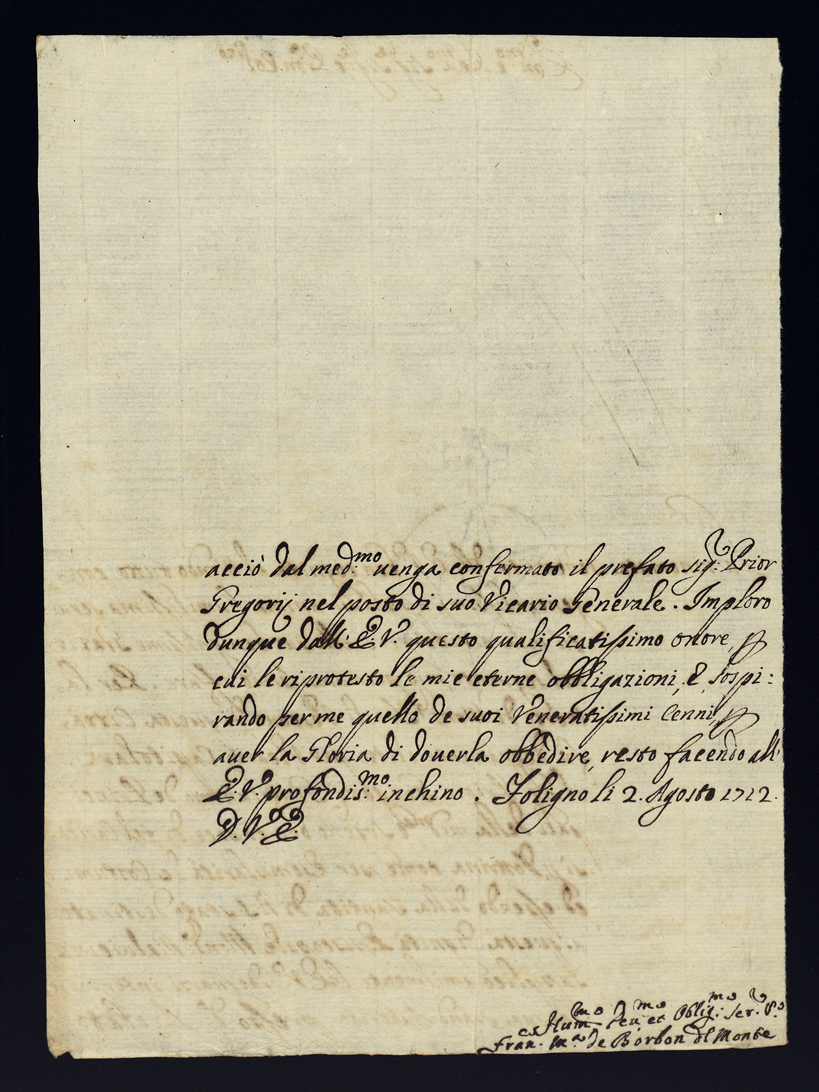 acciò dal med:mo venga confermato il prefato sig:r Prior
Gregorij nel posto di suo Vicario Generale. Imploro
dunque dall' E.V. questo qualificatissimo onore, p
cui le riprotesto le mie eterne obbligazioni, E sospi:
rando per me quello de suoi Veneratissimi Cenni, p
aver la Gloria di doverla obbedire, resto facendo all'
E.V. profondis:mo inchino. Foligno li 2. Agosto 1712.
D. V. E.
Hum:mo Deu:mo et Oblig:mo Ser:r V:o
Fran. M.a de Borbon del Monte